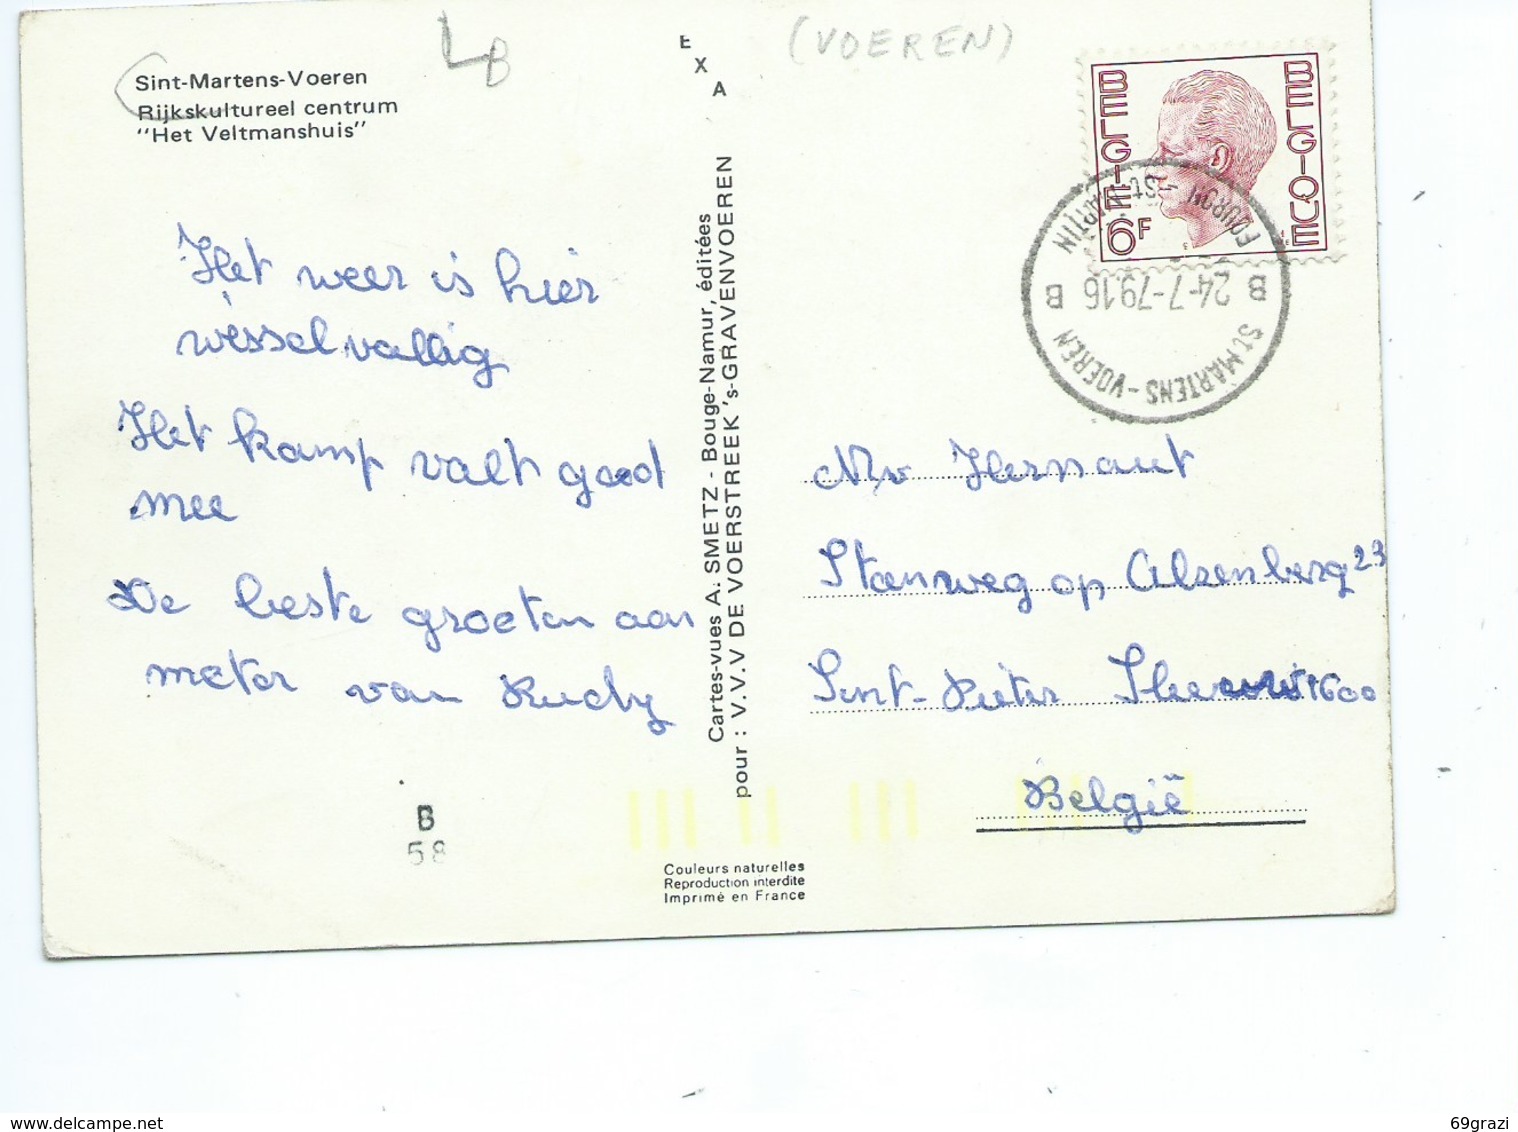 Sint-Martens-Voeren
Rijkskultureel centrum
"Het Veltmanshuis"
LB
E
X
A
(VOEREN)
BELGIË 6F
BELGIQUE
FOURON - St MARTIN
B 24-7-79.16 B
St MARTENS-VOEREN
Het weer is hier
wisselvallig
Het kamp valt goed
mee
De beste groeten aan
meter van Rudy
Cartes-vues A. SMETZ - Bouge-Namur, éditées
pour : V.V.V DE VOERSTREEK 's-GRAVENVOEREN
Mv Hernaut
op Alsenberg 23
Sint-Pieter 1600
België
B
58
Couleurs naturelles
Reproduction interdite
Imprimé en France
69grazi